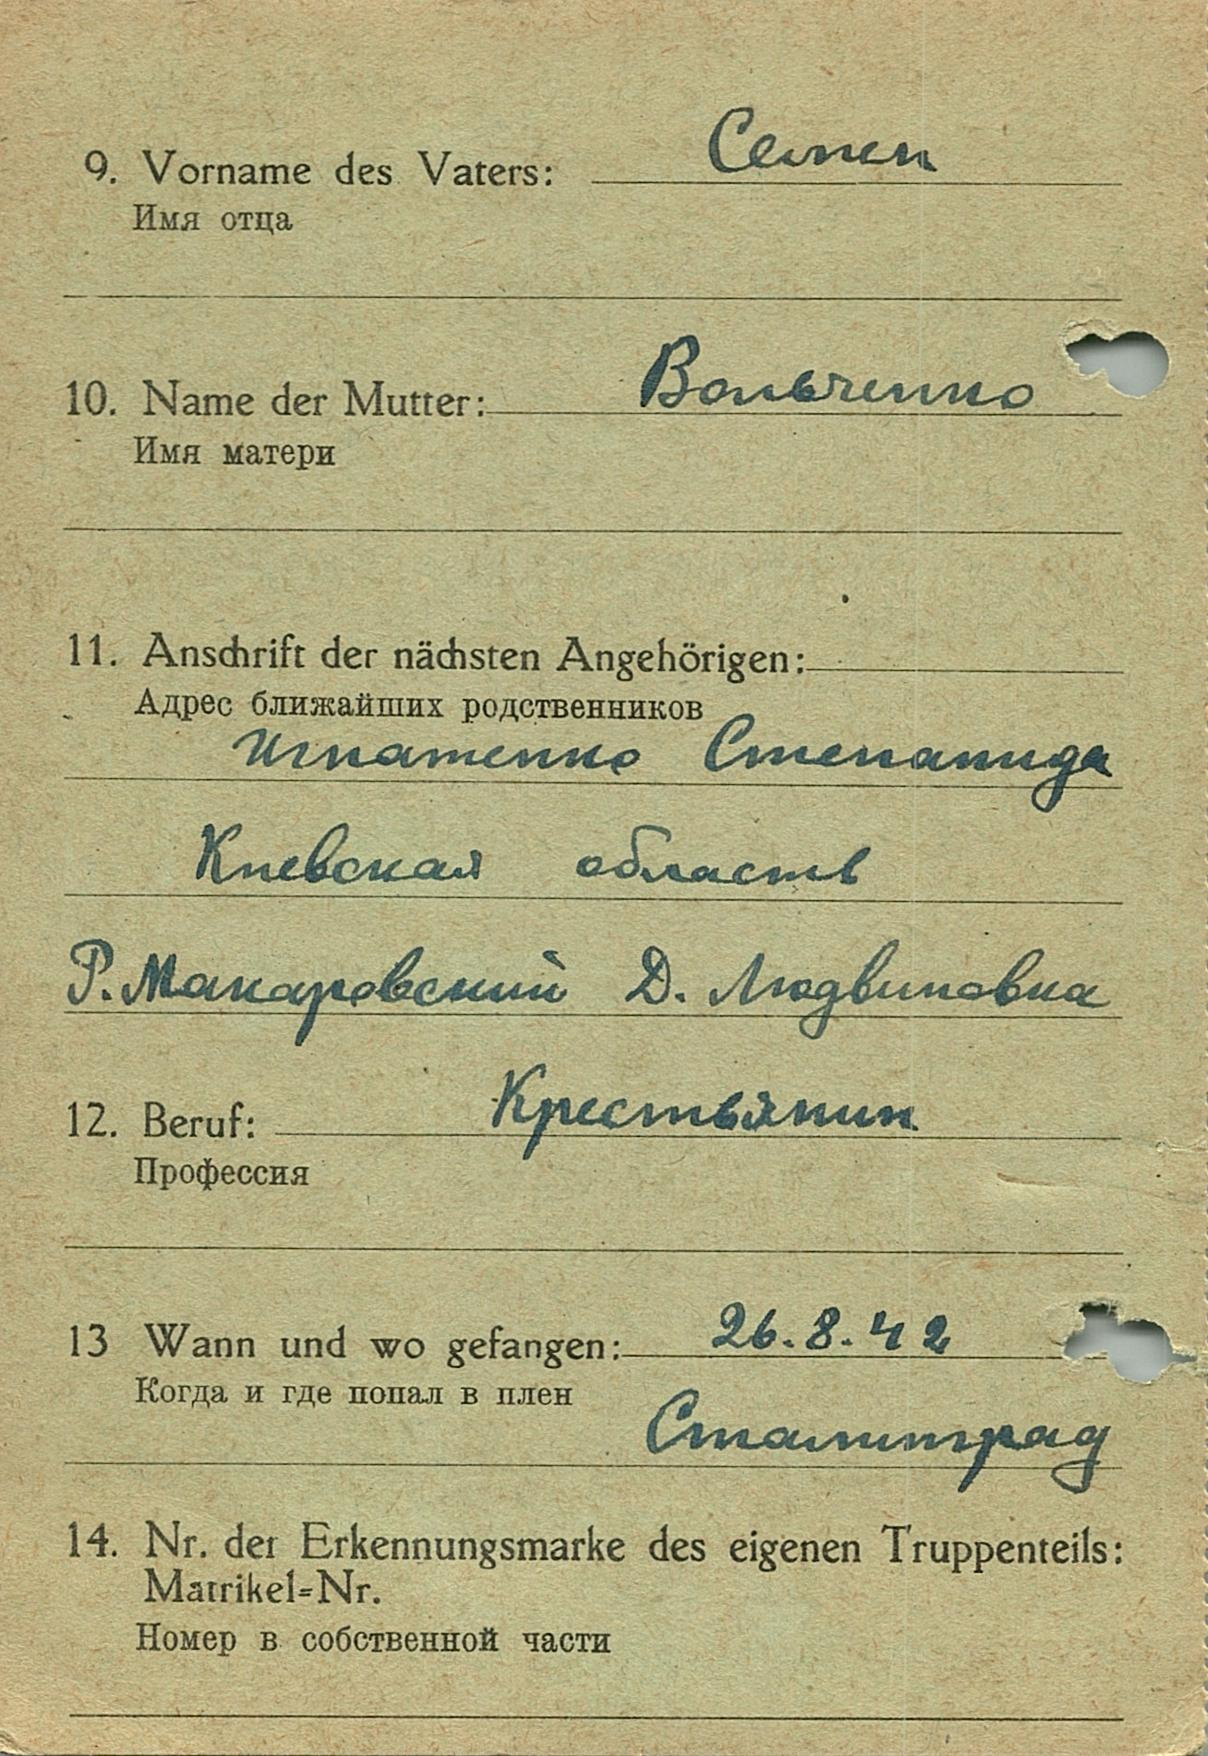 9. Vorname des Vaters: Семен
Имя отца
10. Name der Mutter: Вольченко
Имя матери
11. Anschrift der nächsten Angehörigen:
Адрес ближайших родственников
Игнатенко Степанида
Киевская область
Р. Макаровский Д. Людвиновка
12. Beruf: Крестьянин
Профессия
13 Wann und wo gefangen: 26.8.42
Когда и где попал в плен
Сталинград
14. Nr. der Erkennungsmarke des eigenen Truppenteils:
Matrikel=Nr.
Номер в собственной части